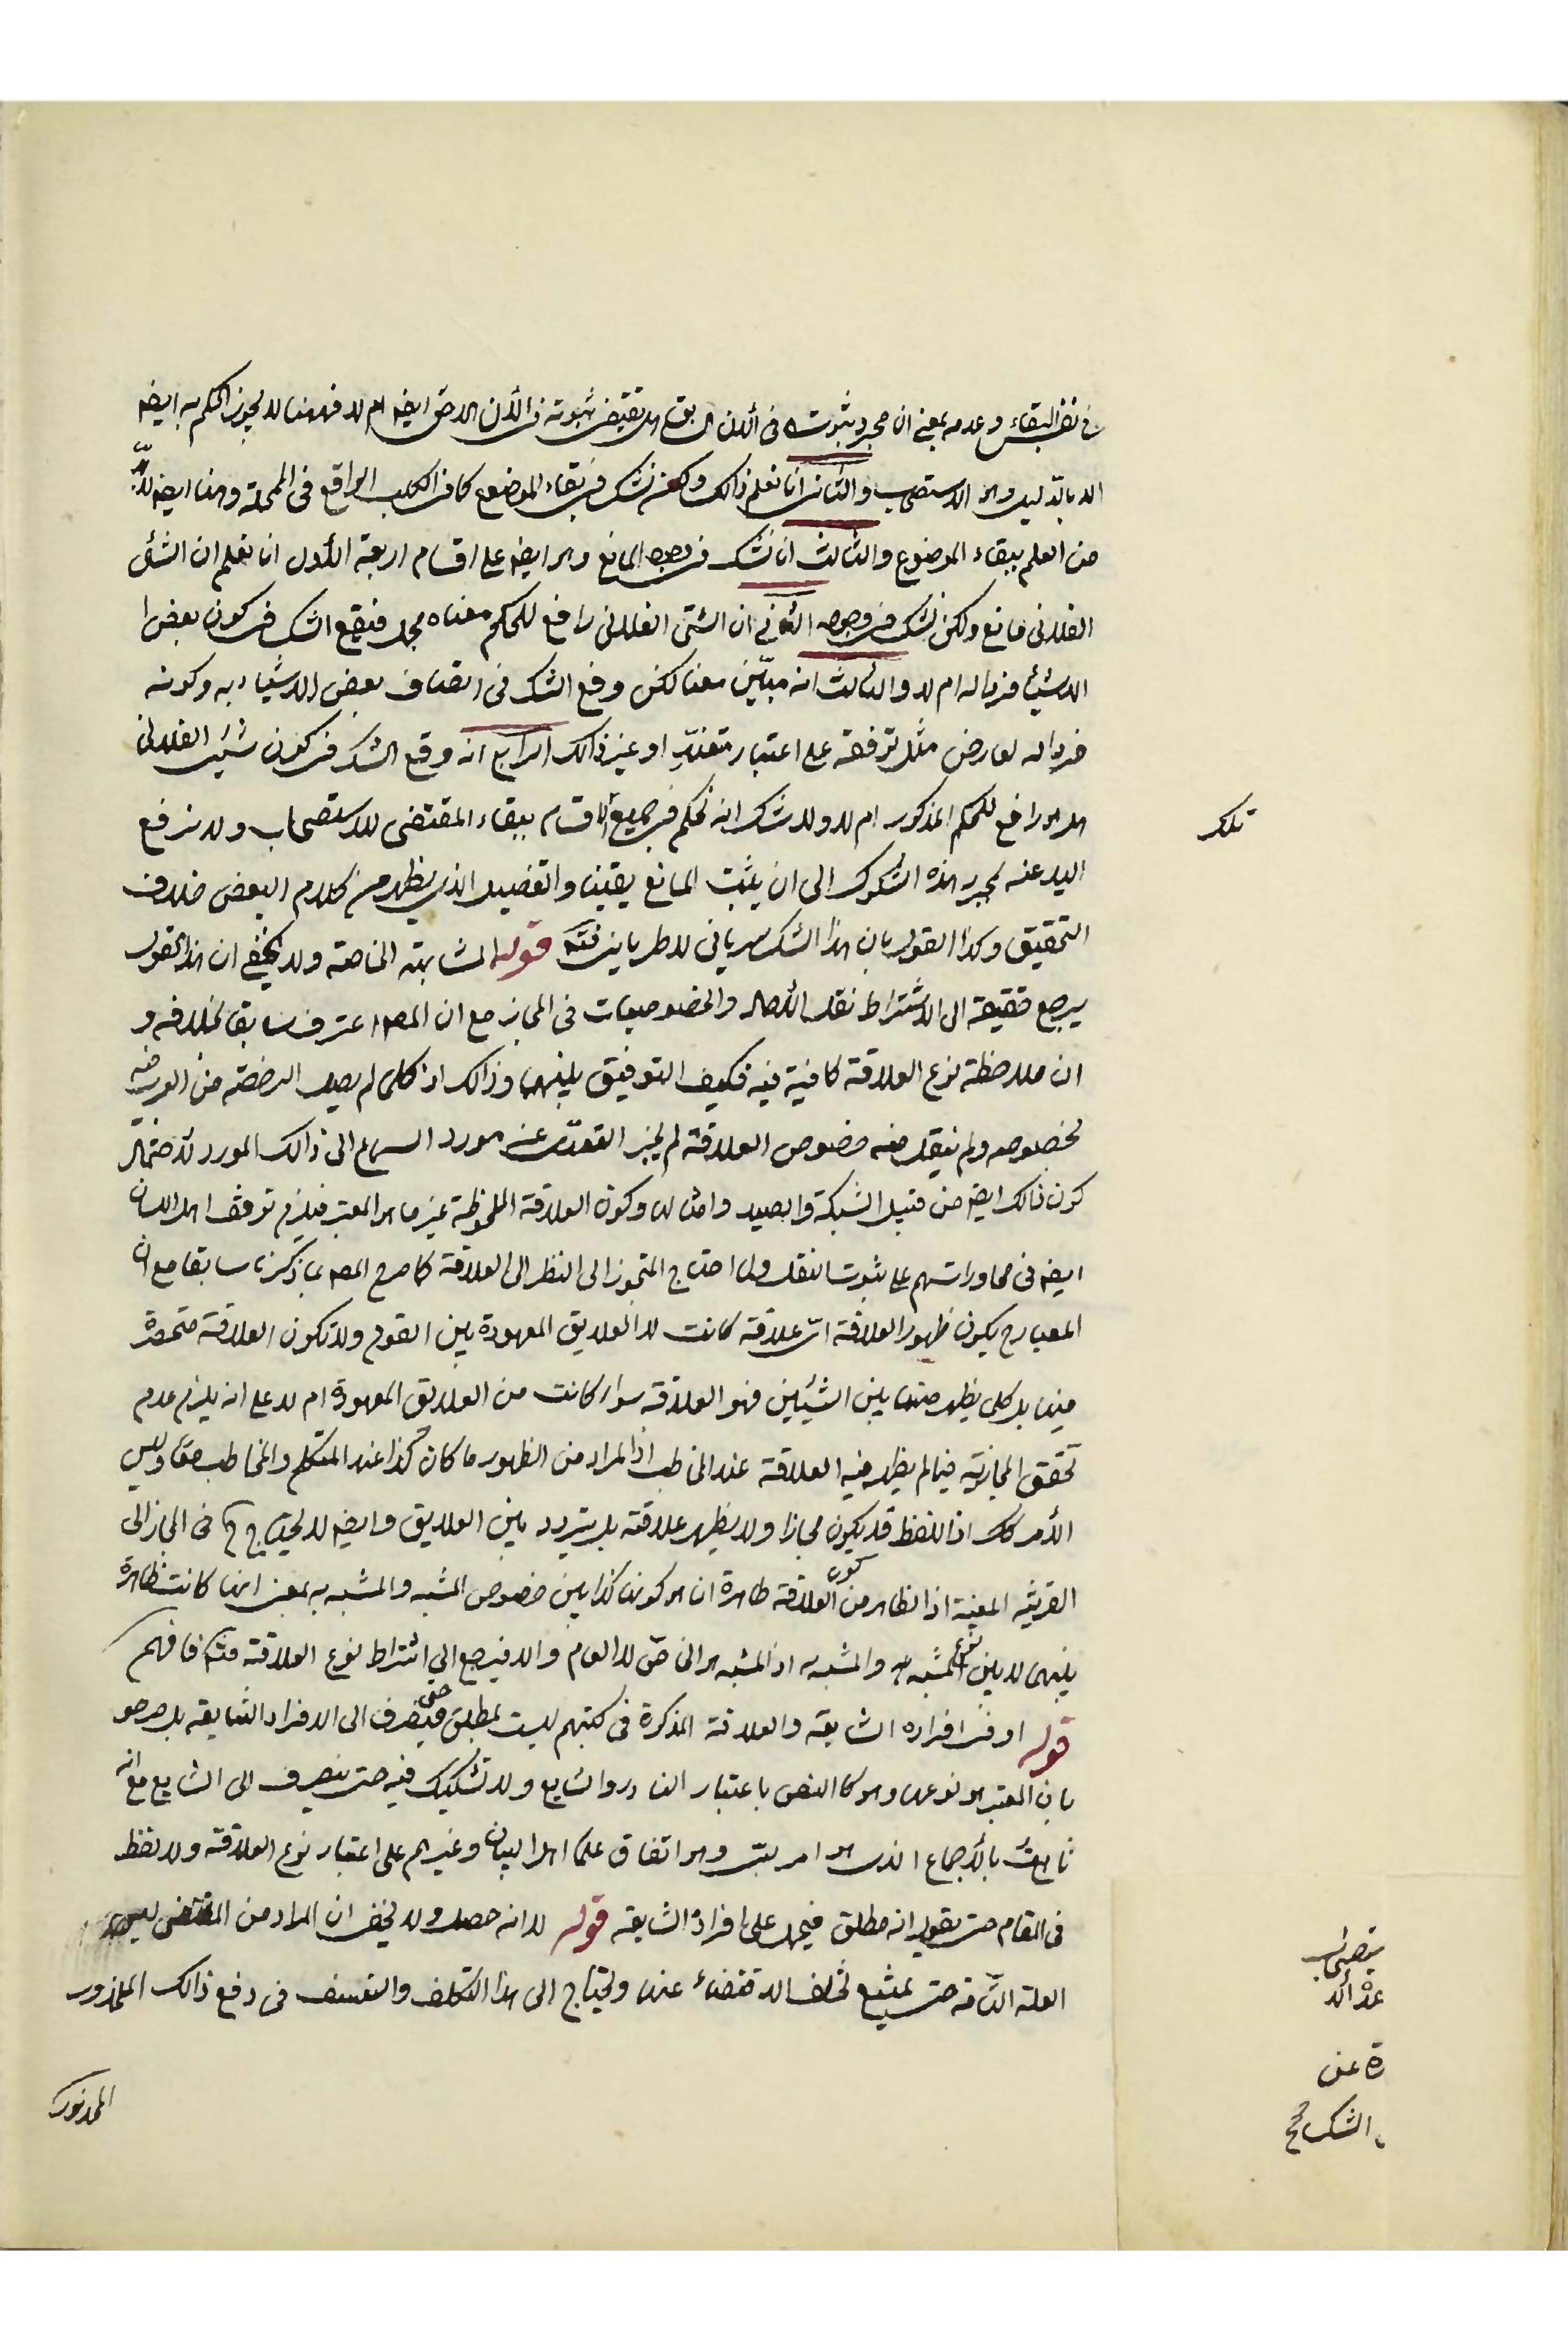 في نفس البقاء وعدمه بمعنى ان مجرد ثبوته في الآن السابق هل يقتضى ثبوته في الآن اللاحق ايضا ام لا فههنا لا يجوز الحكم به ايضا
الا بالدليل وهو الاستصحاب والثانى انا نعلم ذالك ولكن نشك في بقاء الموضوع كما في الكلب الواقع في المملحة وهنا ايضا لا بد
من العلم ببقاء الموضوع والثالث انا نشك في وجود المانع وهو ايضا على اقسام اربعة الأول انا نعلم ان الشئ
الفلانى مانع ولكن نشك في وجوده الثاني ان الشئ الفلانى رافع للحكم معناه مجمل فيقع الشك في كون بعض ا
الاشياء فردا له ام لا والثالث انه مبيّن معنا لكن وقع الشك في اتصاف بعض الاشياء به وكونه
فردا له لعارض مثل توقفه على اعتبار متعذر او غير ذالك الرابع انه وقع الشك في كون شئ الفلانى
هل هو رافع للحكم المذكور ام لا ولا شك انه نحكم في جميع الأقسام ببقاء المقتضى للاستصحاب ولا نرفع
اليد عنه بمجرد هذه الشكوك الى ان يثبت المانع يقينا والتفصيل الذى يظهر من كلام البعض خلاف
التحقيق وكذا القول بان هذا الشك سريانى لا طريانى فتد قوله المشابهة الخاصة ولا يخفى ان هذا القول
يرجع حقيقة الى الاشتراط نقل الآحاد والخصوصيات في المجاز مع ان المص اعترف سابقا بخلافه و
ان ملاحظة نوع العلاقة كافية فيه فكيف التوفيق بينهما وذالك اذ كلما لم يصل الرخصة من العرب فيه
بخصوصه ولم ينقل منه خصوص العلاقة لم يجز التعدى عن مورد السماع الى ذالك المورد لاحتمال
كون ذالك ايضا من قبيل الشبكة والصيد وامثاله وكون العلاقة الملحوظة غير ما هو المعتبر فيلزم توقف اهل اللسان
ايضا في محاوراتهم على ثبوت النقل ولما احتاج المتجوز الى النظر الى العلاقة كما صرح المص بما ذكرنا سابقا مع ان
المعيار ح يكون ظهور العلاقة اى علاقة كانت لا العلايق المعهودة بين القوم ولا تكون العلاقة منحصرة
فيها بل كلما يظهر منها بين الشيئين فهو العلاقة سواء كانت من العلايق المعهودة ام لا على انه يلزم عدم
تحقق المجازية فيما لم يظهر فيه العلاقة عند المخاطب اذ المراد من الظهور ما كان كذا عند المتكلم والمخاطب معا وليس
الأمر كك اذ اللفظ قد يكون مجازا ولا يظهر علاقته بل يتردد بين العلايق وايضا لا يحتاج ح في المجاز الى
القرينة المعينة اذ الظاهر من كون العلاقة ظاهرة انما هو كونها كذا بين خصوص المشبه والمشبه به بمعنى انها كانت ظاهرة
بينهما لا بين نوع المشبه والمشبه به اذ المشبه هو الخاص لا العام والا فيرجع الى اشتراط نوع العلاقة فتد فافهم
قوله او في افراده الشايعه والعلاقة المذكرة في كتبهم ليست بمطلق حتى فينصرف الى الافراد الشايعه بل صرحو
بان المعتبر هو نوعها وهو كالنص باعتبار النادر والشايع ولا تشكيك فيه حتى ينصرف الى الشايع مع انه
ثابت بالأجماع الذى هو امر لبى وهو اتفاق علماء اهل البيان وغيرهم على اعتبار نوع العلاقة ولا لفظ
في المقام حتى يقول انه مطلق فيحمل على افراده الشايعه قوله لا انه حصل ولا يخفى ان المراد من المقتضى ليس
العلة التامة حتى يمتنع تخلف الاقتضاء عنها ويحتاج الى هذا التكلف والتعسف في دفع ذالك المحذور
المذكور
تلك
عن
الشك